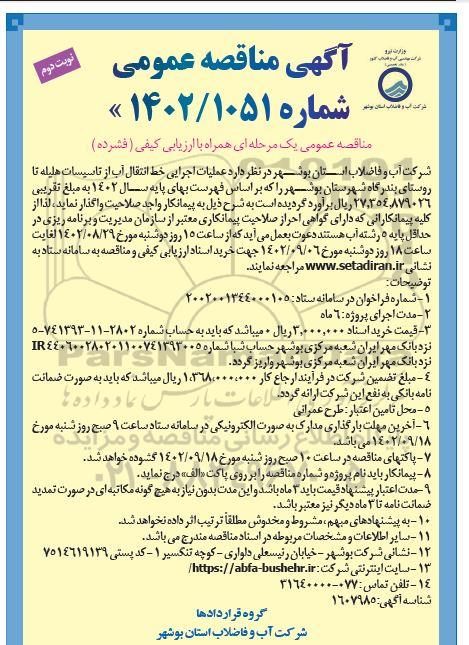 وزارت نیرو
شرکت مهندسی آب و فاضلاب کشور
شرکت آب و فاضلاب استان بوشهر
نوبت دوم
آگهی مناقصه عمومی
شماره ۱۴۰۲/۱۰۵۱ »
مناقصه عمومی یک مرحله ای همراه با ارزیابی کیفی ( فشرده )
شرکت آب و فاضلاب استان بوشهر در نظر دارد عملیات اجرایی خط انتقال آب از تاسیسات هلیله تا
روستای بندرگاه شهرستان بوشهر را که بر اساس فهرست بهای پایه سال ۱۴۰۲ به مبلغ تقریبی
۲۷,۳۵۴,۸۷۹,۰۲۶ ریال برآورد گردیده است به شرح ذیل به پیمانکار واجد صلاحیت واگذار نماید، لذا از
کلیه پیمانکارانی که دارای گواهی احراز صلاحیت پیمانکاری معتبر از سازمان مدیریت و برنامه ریزی در
حداقل پایه ۵ رشته آب هستند دعوت بعمل می آید که از ساعت ۱۵ روز دوشنبه مورخ ۱۴۰۲/۰۸/۲۹ لغایت
ساعت ۱۸ روز دوشنبه مورخ ۱۴۰۲/۰۹/۰۶ جهت خرید اسناد ارزیابی کیفی و مناقصه به سامانه ستاد به
نشانی www.setadiran.ir مراجعه نمایند.
توضیحات:
۱- شماره فراخوان در سامانه ستاد: ۲۰۰۲۰۰۱۳۴۴۰۰۰۱۰۵
۲- مدت اجرای پروژه: ۶ ماه
۳- قیمت خرید اسناد ۳,۰۰۰,۰۰۰ ریال میباشد که باید به حساب شماره ۲۸۰۲-۱۱-۷۴۱۳۹۳-۵
نزد بانک مهر ایران شعبه مرکزی بوشهر حساب شبا شماره IR۴۴۰۶۰۰۲۸۰۲۰۱۱۰۰۷۴۱۳۹۳۰۰۵
نزد بانک مهر ایران شعبه مرکزی بوشهر واریز گردد.
۴- مبلغ تضمین شرکت در فرآیند ارجاع کار ۱,۳۶۸,۰۰۰,۰۰۰ ریال میباشد که باید به صورت ضمانت
نامه بانکی به نفع این شرکت ارائه گردد.
۵- محل تامین اعتبار: طرح عمرانی
۶- آخرین مهلت بارگذاری مدارک به صورت الکترونیکی در سامانه ستاد ساعت ۹ صبح روز شنبه مورخ
۱۴۰۲/۰۹/۱۸ می باشد.
۷- پاکتهای مناقصه در ساعت ۱۰ صبح روز شنبه مورخ ۱۴۰۲/۰۹/۱۸ گشوده خواهد شد.
۸- پیمانکار باید نام پروژه و شماره مناقصه را بر روی پاکت «الف» درج نماید.
۹- مدت اعتبار پیشنهاد قیمت باید ۳ ماه باشد و این مدت بدون نیاز به هیچ گونه مکاتبه ای در صورت تمدید
ضمانت نامه تا ۳ ماه دیگر نیز معتبر باشد.
۱۰- به پیشنهادهای مبهم، مشروط و مخدوش مطلقاً ترتیب اثر داده نخواهد شد.
۱۱- سایر اطلاعات و مشخصات مربوطه در اسناد مناقصه مندرج می باشد.
۱۲- نشانی شرکت بوشهر - خیابان رئیسعلی دلواری - کوچه تنگسیر ۱- کد پستی ۷۵۱۴۶۱۹۱۳۹
۱۳- سایت اینترنتی شرکت: https://abfa-bushehr.ir/
۱۴- تلفن تماس: ۰۷۷-۳۱۶۴۰۰۰۰
شناسه آگهی: ۱۶۰۷۹۸۵
گروه قراردادها
شرکت آب و فاضلاب استان بوشهر